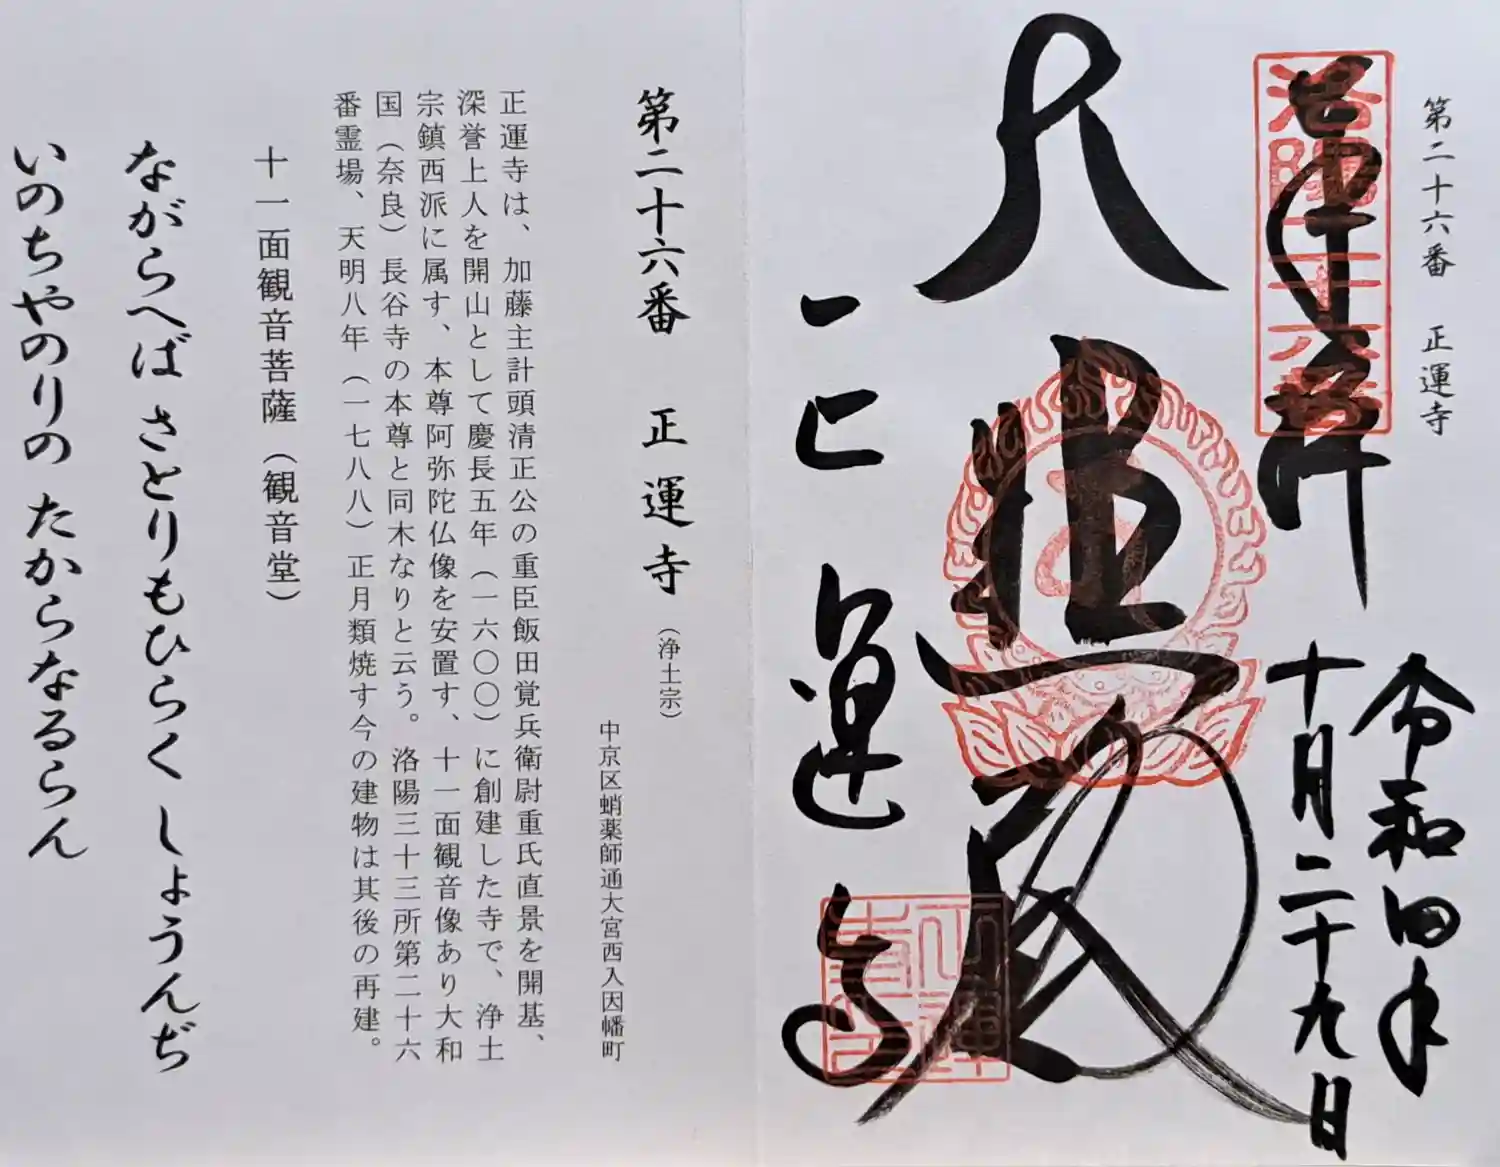 第二十六番 正運寺
洛陽二十六番
奉拝
令和四年
十月二十九日
大悲殿
正運寺
第二十六番 正運寺 (浄土宗)
中京区蛸薬師通大宮西入因幡町
正運寺は、加藤主計頭清正公の重臣飯田覚兵衛尉重氏直景を開基、
深誉上人を開山として慶長五年(一六〇〇)に創建した寺で、浄土
宗鎮西派に属す、本尊阿弥陀仏像を安置す、十一面観音像あり大和
国(奈良)長谷寺の本尊と同木なりと云う。洛陽三十三所第二十六
番霊場、天明八年(一七八八)正月類焼す今の建物は其後の再建。
十一面観音菩薩(観音堂)
ながらへば さとりもひらく しょうんぢ
いのちやのりの たからなるらん